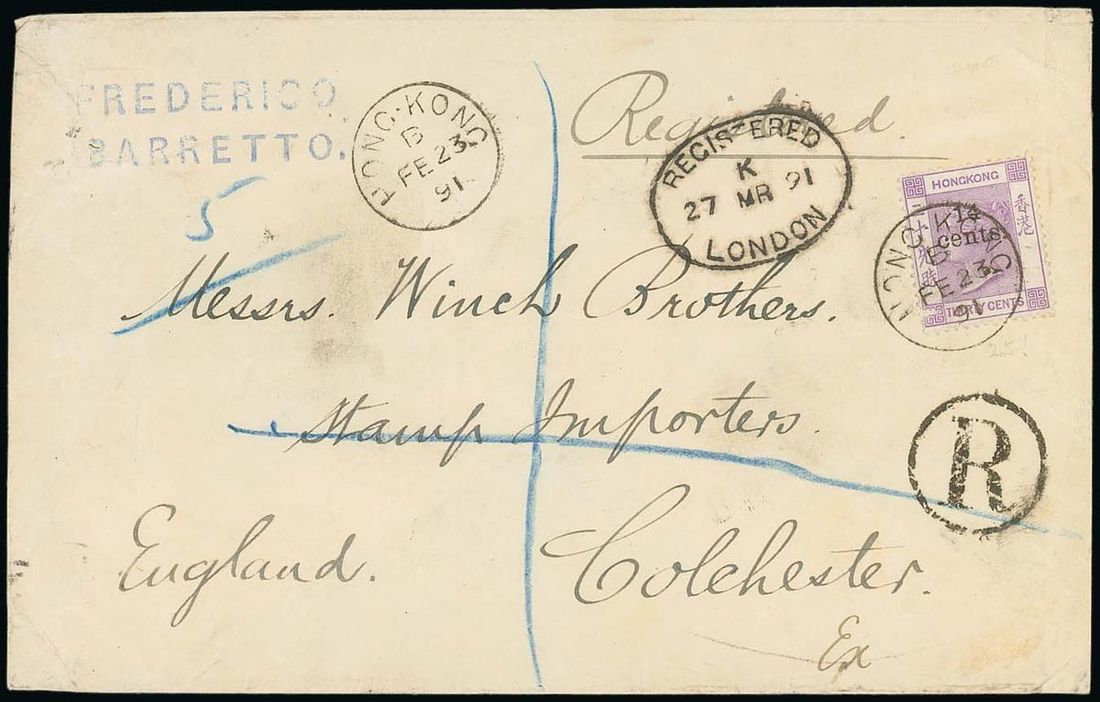 FREDERICO
BARRETTO.
HONG·KONG
B
FE 23
91
Registered.
REGISTERED
K
27 MR 91
LONDON
HONGKONG
香港
14
cents.
THIRTY CENTS
HONG KONG
B
FE 23
91
5
Messrs. Winch Brothers.
Stamp Importers.
R
England.
Colchester.
Ex